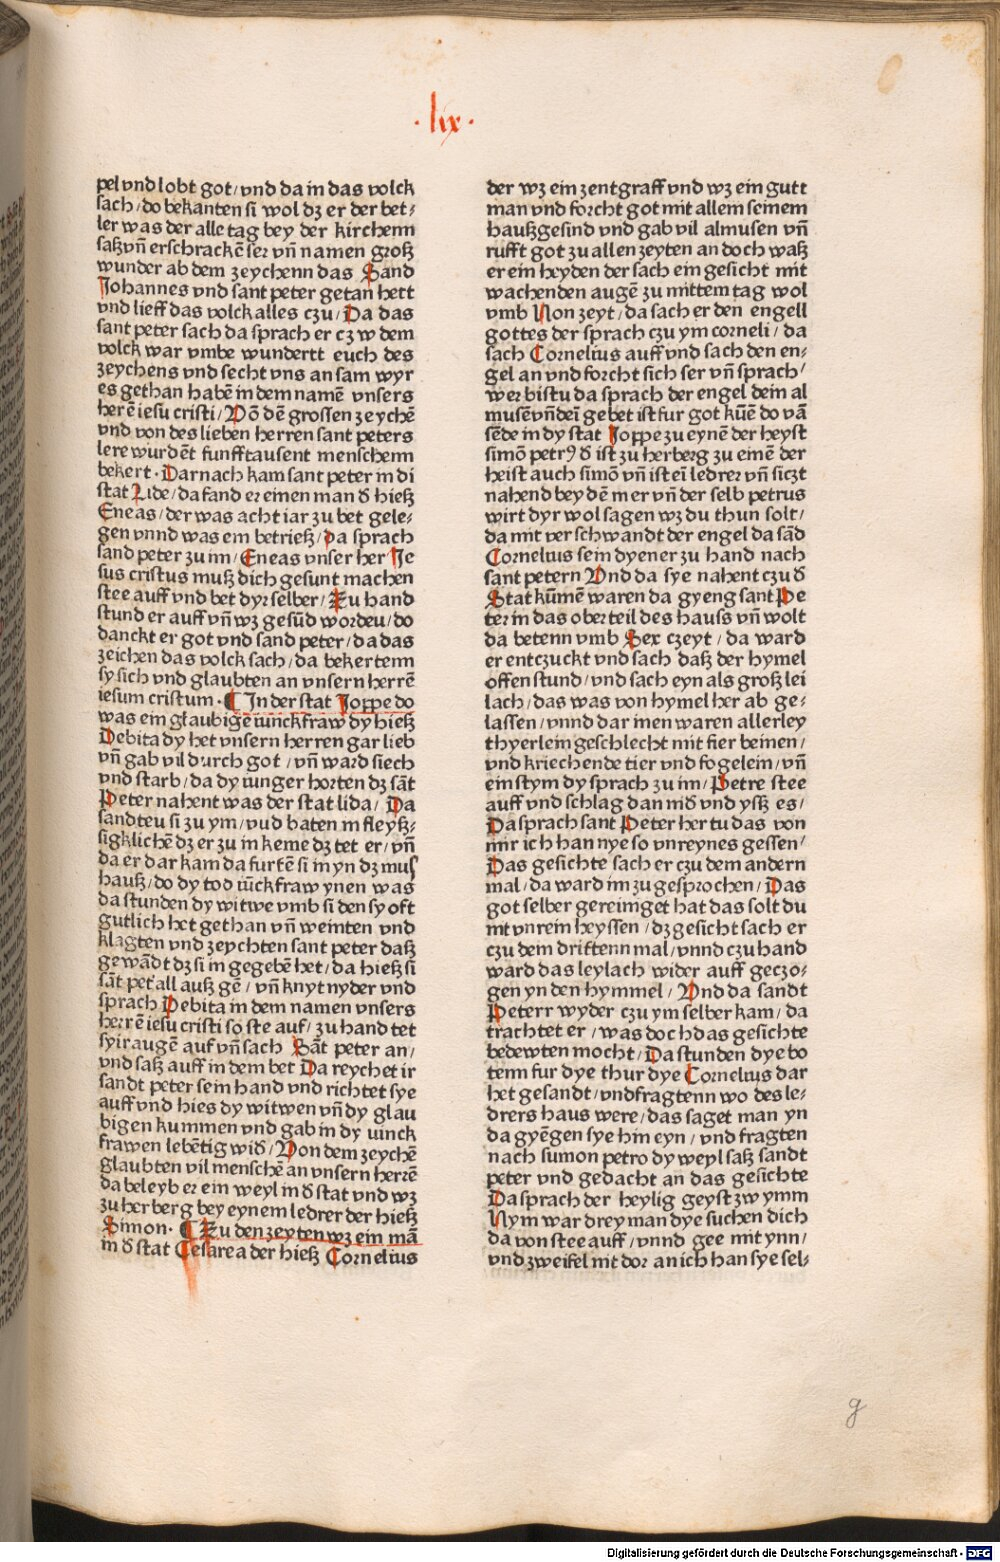 ·lix·
pel vnd lobt got/vnd da in das volck
sach/do bekanten si wol dz er der bet⸗
ler was der alle tag bey der kirchenn
saß vñ erschrackē ser vñ namen groß
wunder ab dem zeychenn das Sand
Johannes vnd sant peter getan hett
vnd lieff das volck alles czu/Da das
sant peter sach da sprach er cz w dem
volck war vmbe wundertt euch des
zeychens vnd secht vns an sam wyr
es gethan habē in dem namē vnsers
herē iesu cristi/Vō dē grossen zeychē
vnd von des lieben herren sant peters
lere wurdēt funfftausent menschenn
bekert·Darnach kam sant peter in di
stat Lide/da fand er einen man đ hieß
Eneas/der was acht iar zu bet gele⸗
gen vnnd was em betrieß/da sprach
sand peter zu im/Eneas vnser her Je
sus cristus muß dich gesunt machen
stee auff vnd bet dyr selber/Zu hand
stund er auff vñ wz gesūd wordeu/do
danckt er got vnd sand peter/da das
zeichen das volck sach/da bekertenn
sy sich vnd glaubten an vnsern herrē
iesum cristum·¶ In der stat Joppe do
was ein glaubigē iunckfraw dy hieß
Debita dy het vnsern herren gar lieb
vñ gab vil durch got/vñ ward siech
vnd starb/da dy iunger horten dz sāt
Peter nahent was der stat lida/Da
sandteu si zu ym/vud baten in fleyß⸗
sigklichē dz er zu in keme dz tet er/vñ
da er dar kam da furtē si in yn dz mus
hauß/do dy tod iūckfraw ynen was
da stunden dy witwe vmb si den sy oft
gutlich het gethan vñ weinten vnd
klagten vnd zeychten sant peter daß
gewādt dz si in gegebē het/da hieß si
sāt pet' all auß gē/vñ knyt nyder vnd
sprach Debita in dem namen vnsers
herrē iesu cristi so ste auf/zu hand tet
sy ir augē auf vñ sach Sāt peter an/
vnd saß auff in dem bet Da reychet ir
sandt peter sein hand vnd richtet sye
auff vnd hies dy witwen vñ dy glau
bigen kummen vnd gab in dy uinck
frawen lebētig wiđ/Von dem zeychē
glaubten vil menschē an vnsern herrē
da beleyb er ein weyl in đ stat vnd wz
zu herberg bey eynem ledrer der hieß
Simon·¶ Zu den zeyten wz ein mā
in đ stat Cesarea der hieß Cornelius
der wz ein zentgraff vnd wz ein gutt
man vnd forcht got mit allem seinem
haußgesind vnd gab vil almusen vñ
rufft got zu allen zeyten an doch waß
er ein heyden der sach ein gesicht mit
wachenden augē zu mittem tag wol
vmb Non zeyt/da sach er den engell
gottes der sprach czu ym corneli/da
sach Cornelius auff vnd sach den en⸗
gel an vnd forcht sich ser vñ sprach/
wer bistu da sprach der engel dein al
musē vñ deī gebet ist fur got kūē do vā
sēde in dy stat Joppe zu eynē der heyst
simō petrꝰ đ ist zu herberg zu einē der
heist auch simō vñ ist eī ledrer vñ siczt
nahend bey dē mer vñ der selb petrus
wirt dyr wol sagen wz du thun solt/
da mit verschwandt der engel da sād
Cornelius sein dyener zu hand nach
sant petern Vnd da sye nahent czu đ
Stat kūmē waren da gyeng sant Pe
ter in das oberteil des hauss vñ wolt
da betenn vmb Sex czeyt/da ward
er entczuckt vnd sach daß der hymel
offen stund/vnd sach eyn als groß lei
lach/das was von hymel her ab ge⸗
lassen/vnnd dar inen waren allerley
thyerlein geschlecht mit fier beinen/
vnd kriechende tier vnd fogelein/vñ
ein stym dy sprach zu im/Petre stee
auff vnd schlag dan niđ vnd yß es/
Da sprach sant Peter her tu das von
mir ich han nye so vnreynes gessen/
Das gesichte sach er czu dem andern
mal/da ward im zu gesprochen/Das
got selber gereimget hat das solt du
nit vnrein heyssen/dz gesicht sach er
czu dem drittenn mal/vnnd czu hand
ward das leylach wider auff geczo⸗
gen yn den hymmel/Vnd da sandt
Peterr wyder czu ym selber kam/da
trachtet er/was doch das gesichte
bedewten mocht/Da stunden dye bo
tenn fur dye thur dye Cornelius dar
het gesandt/vnd fragtenn wo des le⸗
drers haus were/das saget man yn
da gyēgen sye hin eyn/vnd fragten
nach sumon petro dy weyl saß sandt
peter vnd gedacht an das gesichte
Da sprach der heylig geyst zw ymm
Nym war drey man dye suchen dich
da von stee auff/vnnd gee mit ynn/
vnd zweifel nit dor an ich han sye sel⸗
g
Digitalisierung gefördert durch die Deutsche Forschungsgemeinschaft - DFG